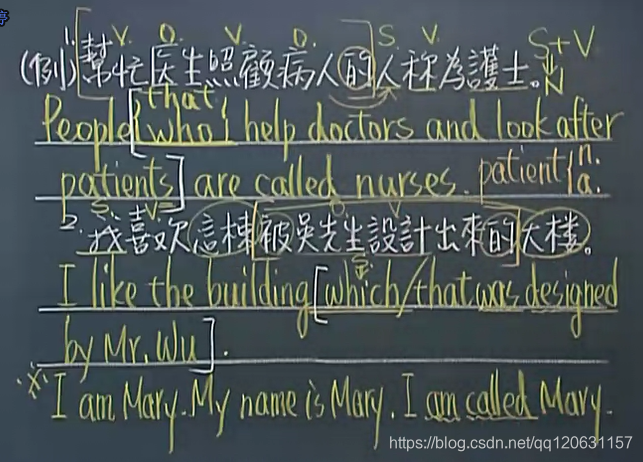 停
1. V. O. V. O. S. V.
(例)幫忙医生照顧病人的人稱為護士。 S+V
N
that
People[who help doctors and look after
patients] are called nurses. patient{n. a.
S. V. O V
2. 我喜欢這棟被吳先生設計出來的大楼。
S.
I like the building[which/that was designed
by Mr. Wu].
※ I am Mary. My name is Mary. I am called Mary.
https://blog.csdn.net/qq120631157